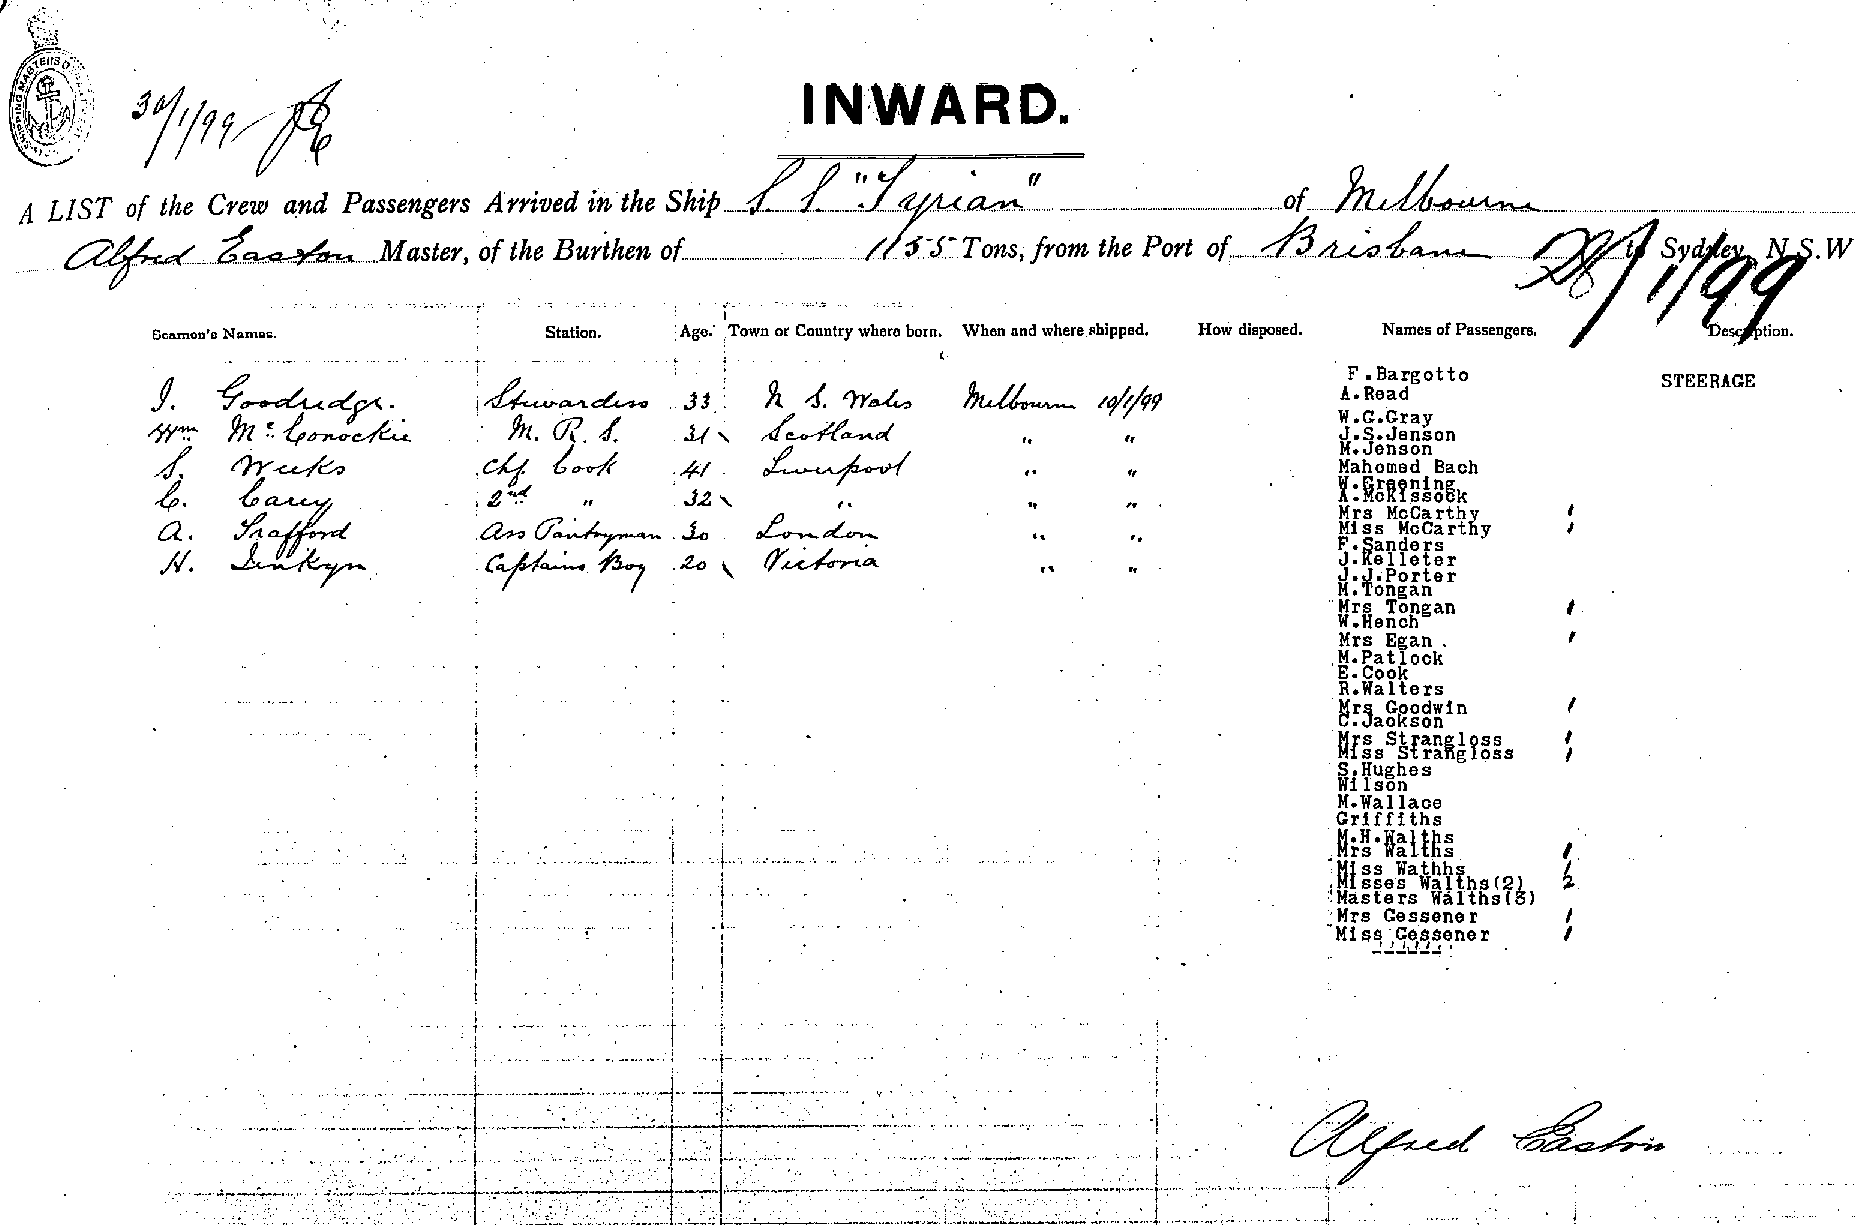 30/1/99
INWARD.
A LIST of the Crew and Passengers Arrived in the Ship S. S. "Tyrian" of Melbourne
Alfred Easton Master, of the Burthen of 1155 Tons, from the Port of Brisbane to Sydney, N.S.W
28/1/99
Seamen's Names. Station. Age. Town or Country where born. When and where shipped. How disposed. Names of Passengers. Description.
F.Bargotto STEERAGE
I. Goodredge. Stewardess 33 N S. Wales Melbourne 10/1/99 A.Read
W.G.Gray
Wm Mc. Conockie M. R. S. 31 Scotland " " J.S.Jenson
M.Jenson
S. Weeks Chf Cook 41 Liverpool " " Mahomed Bach
W.Greening
C. Carey 2nd " 32 " " " A.McKissock
Mrs McCarthy 1
A. Trafford Ass Pantryman 30 London " " Miss McCarthy 1
F.Sanders
H. Jenkyn Captains Boy 20 Victoria " " J.Kelleter
J.J.Porter
M.Tongan
Mrs Tongan 1
W.Hench
Mrs Egan . 1
M.Patlock
E.Cook
R.Walters
Mrs Goodwin 1
C.Jackson
Mrs Strangloss 1
Miss Strangloss 1
S.Hughes
Wilson
M.Wallace
Griffiths
M.H.Walths
Mrs Walths 1
Miss Wathhs 1
Misses Walths(2) 2
Masters Walths(3)
Mrs Gessener 1
Miss Gessener 1
Alfred Easton